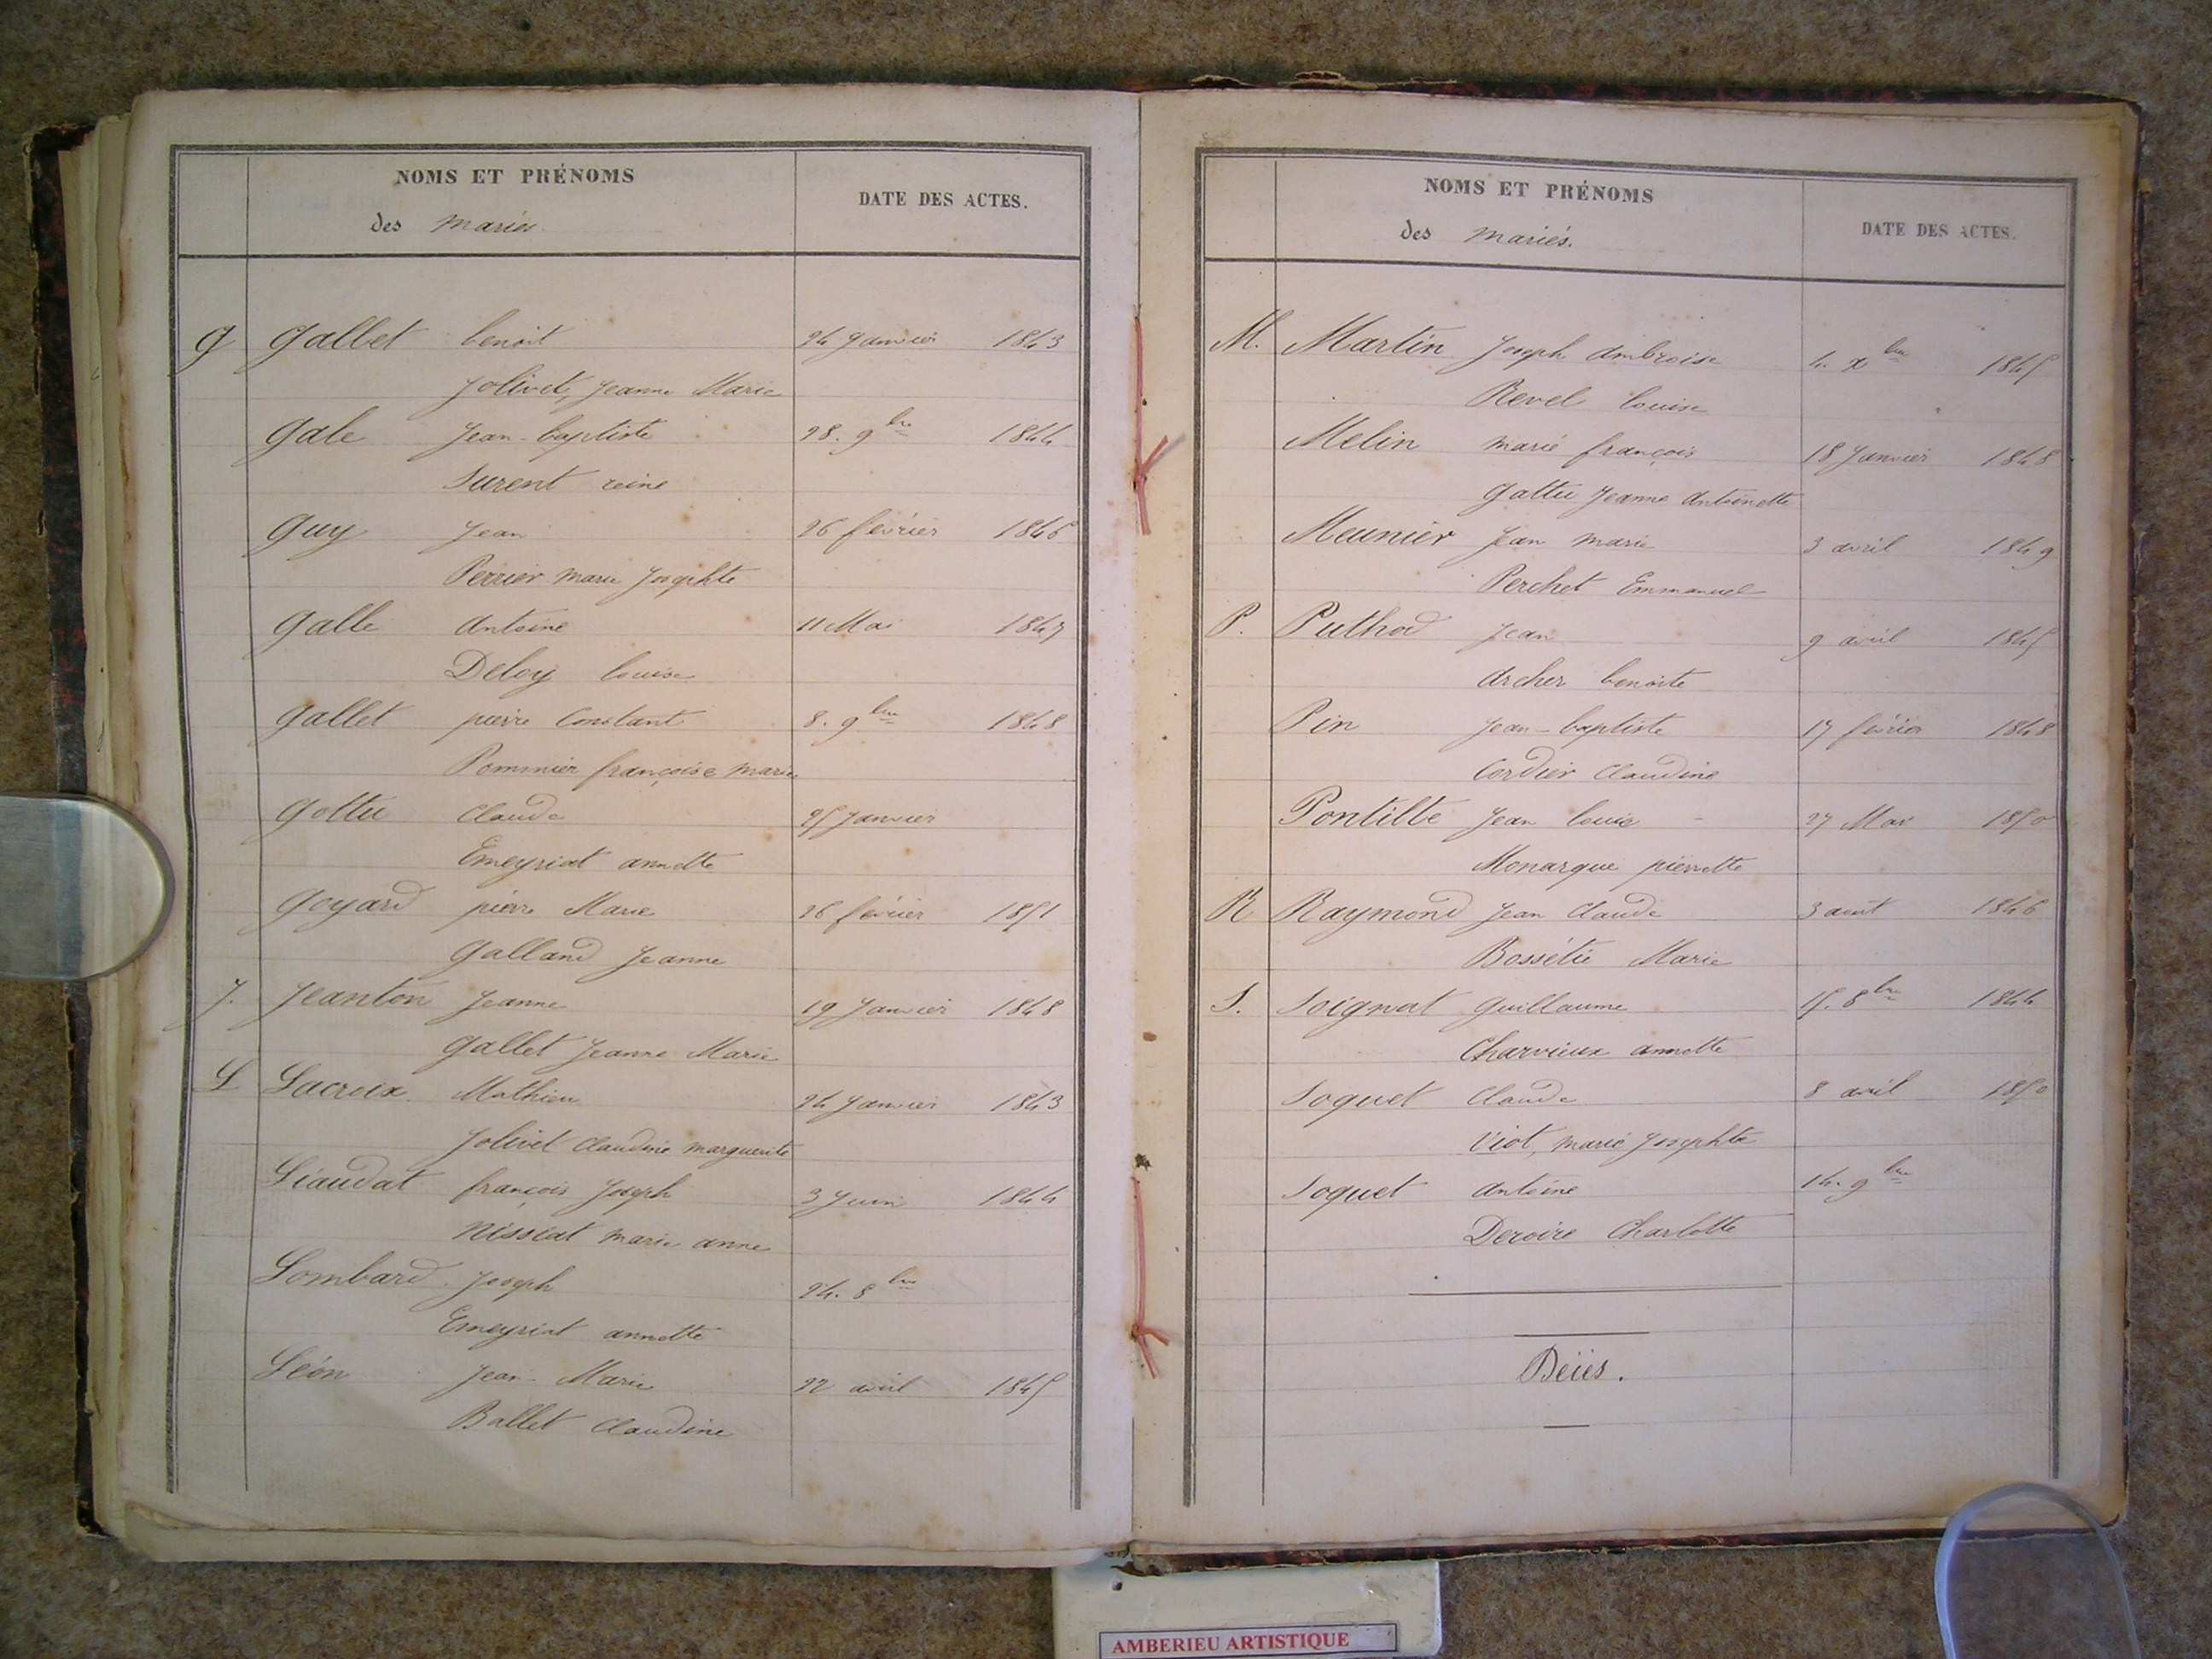 NOMS ET PRÉNOMS
des mariés.
DATE DES ACTES.
G Gallet benoit 24 Janvier 1843
Jolivet, Jeanne Marie
Gale Jean-baptiste 28. 9bre 1844
Surent reine
Guy Jean 26 février 1846
Perrier marie Josephte
Galle Antoine 11 Mai 1847
Deloy louise
Gallet pierre Constant 8. 9bre 1848
Pommier françoise marie
Gottu Claude 25 Janvier
Emeyriat annette
Goyard pierre Marie 26 février 1851
Galland Jeanne
J. Jeanton Jeanne 19 Janvier 1848
Gallet Jeanne Marie
L Lacroix Mathieu 24 Janvier 1843
Jolivet Claudine marguerite
Liaudat françois Joseph 3 Juin 1844
marie anne
Lombard Joseph 24. 8bre
Emeyriat annette
Léon Jean-Marie 22 avril 1845
Ballet Claudine
NOMS ET PRÉNOMS
des mariés.
DATE DES ACTES.
M. Martin Joseph Ambroise 4. xbre 1845
Revel louise
Melin marie françois 18 Janvier 1848
Gattu Jeanne Antoinette
Meunier Jean marie 3 avril 1849
Perchet Emmanuel
P. Puthod Jean 9 avril 1845
Archer benoite
Pin Jean-baptiste 17 février 1848
Cordier Claudine
Pontille Jean louis 27 Mai 1850
Monarque pierrette
R Raymond Jean Claude 3 août 1846
Marie
S. Soignat Guillaume 15. 8bre 1844
Charvieux annette
Soquet Claude 8 avril 1850
Viot, marie Josephte
Soquet Antoine 14. 9bre
Deroire Charlotte
AMBERIEU ARTISTIQUE